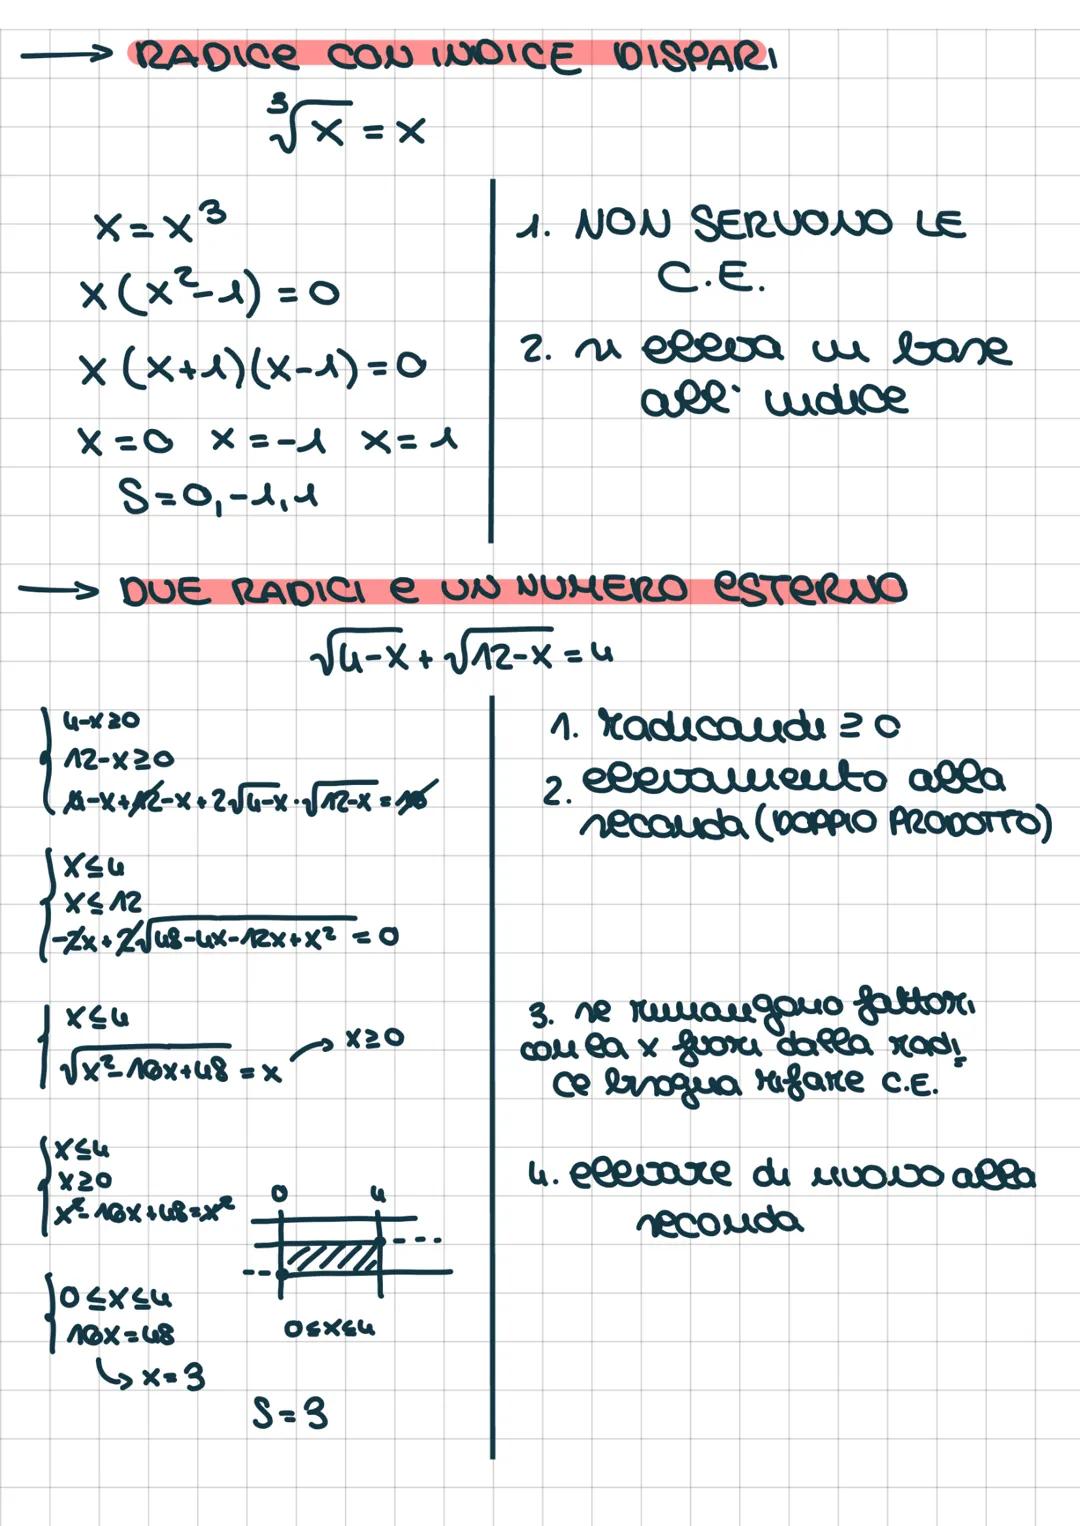 → RADICE CON INDICE DISPARI
∛x = x
x = x³
x(x²-1) = 0
x(x+1)(x-1) = 0
x=0 x=-1 x=1
S=0,-1,1
1. NON SERVONO LE
C.E.
2. si eleva in base
all' indice
→ DUE RADICI e UN NUMERO ESTERNO
√4-x + √12-x = 4
4-x≥0
12-x≥0
4-x+12-x+2√4-x·√12-x = 16
x≤4
x≤12
-2x+2√48-4x-12x+x² = 0
x≤4
√x²-16x+48 = x → x≥0
x≤4
x≥0
x²-16x+48=x²
0 4
0≤x≤4
0≤x≤4
16x=48
↳ x=3
S=3
1. radicandi ≥ 0
2. elevamento alla
seconda (DOPPIO PRODOTTO)
3. se rimangono fattori
con la x fuori dalla radi
ce bisogna rifare C.E.
4. elevare di nuovo alla
seconda